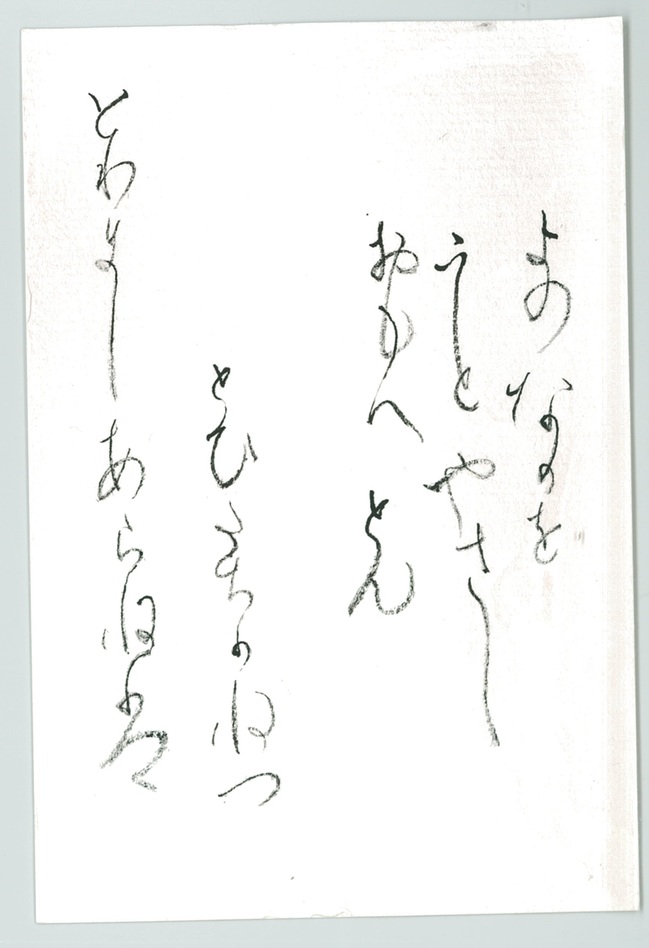 よのなかを
うしとやさし
おもへとも
とひたちかねつ
とりにしあらねは